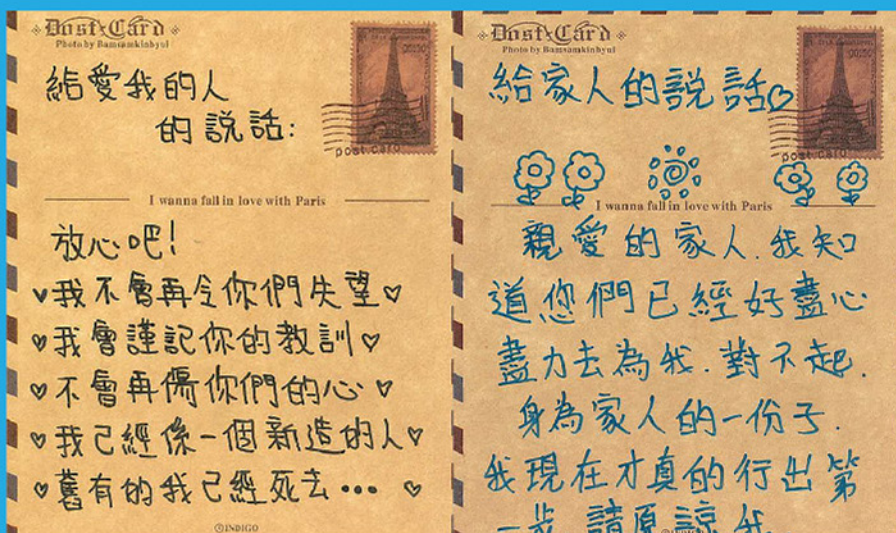 Post Card
Photo by Bamsamkinbyul
給愛我的人
的說話:
post card
I wanna fall in love with Paris
放心吧!
我不會再令你們失望
我會謹記你的教訓
不會再傷你們的心
我已經係一個新造的人
舊有的我已經死去...
©INDIGO
Post Card
Photo by Bamsamkinbyul
給家人的說話
post card
I wanna fall in love with Paris
親愛的家人.我知
道您們已經好盡心
盡力去為我.對不起.
身為家人的一份子.
我現在才真的行出第
一步 請原諒我